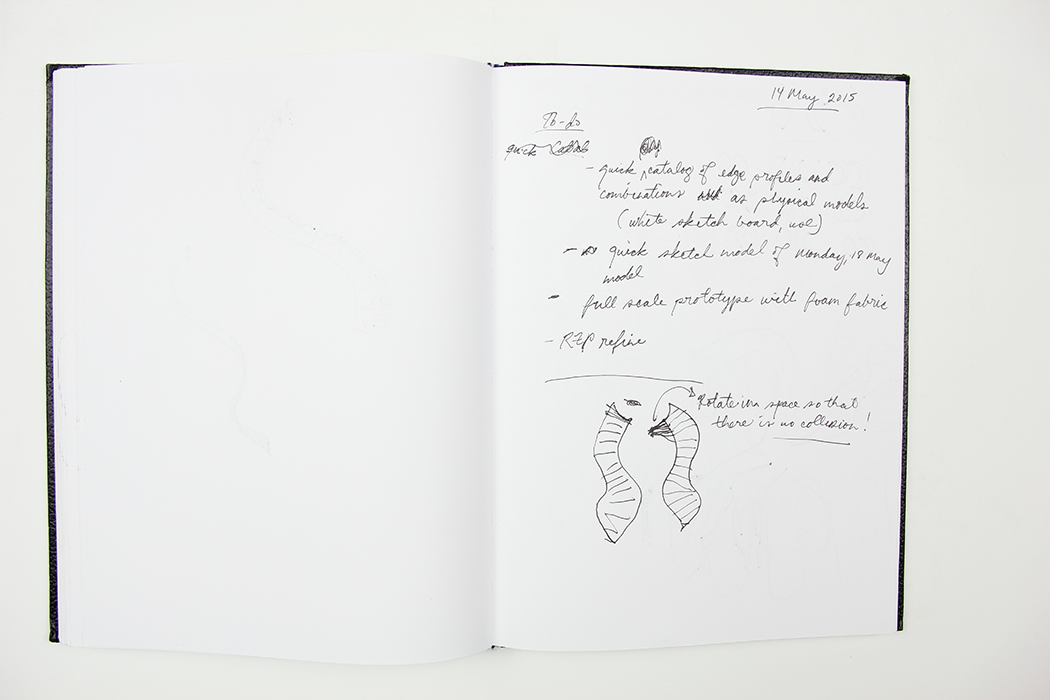 14 May 2015
To-do
quick
- quick catalog of edge profiles and
combinations as physical models
(white sketch board, use)
- quick sketch model of Monday, 18 May
model
- full scale prototype with foam fabric
- RFP refine
Rotate in space so that
there is no collision!